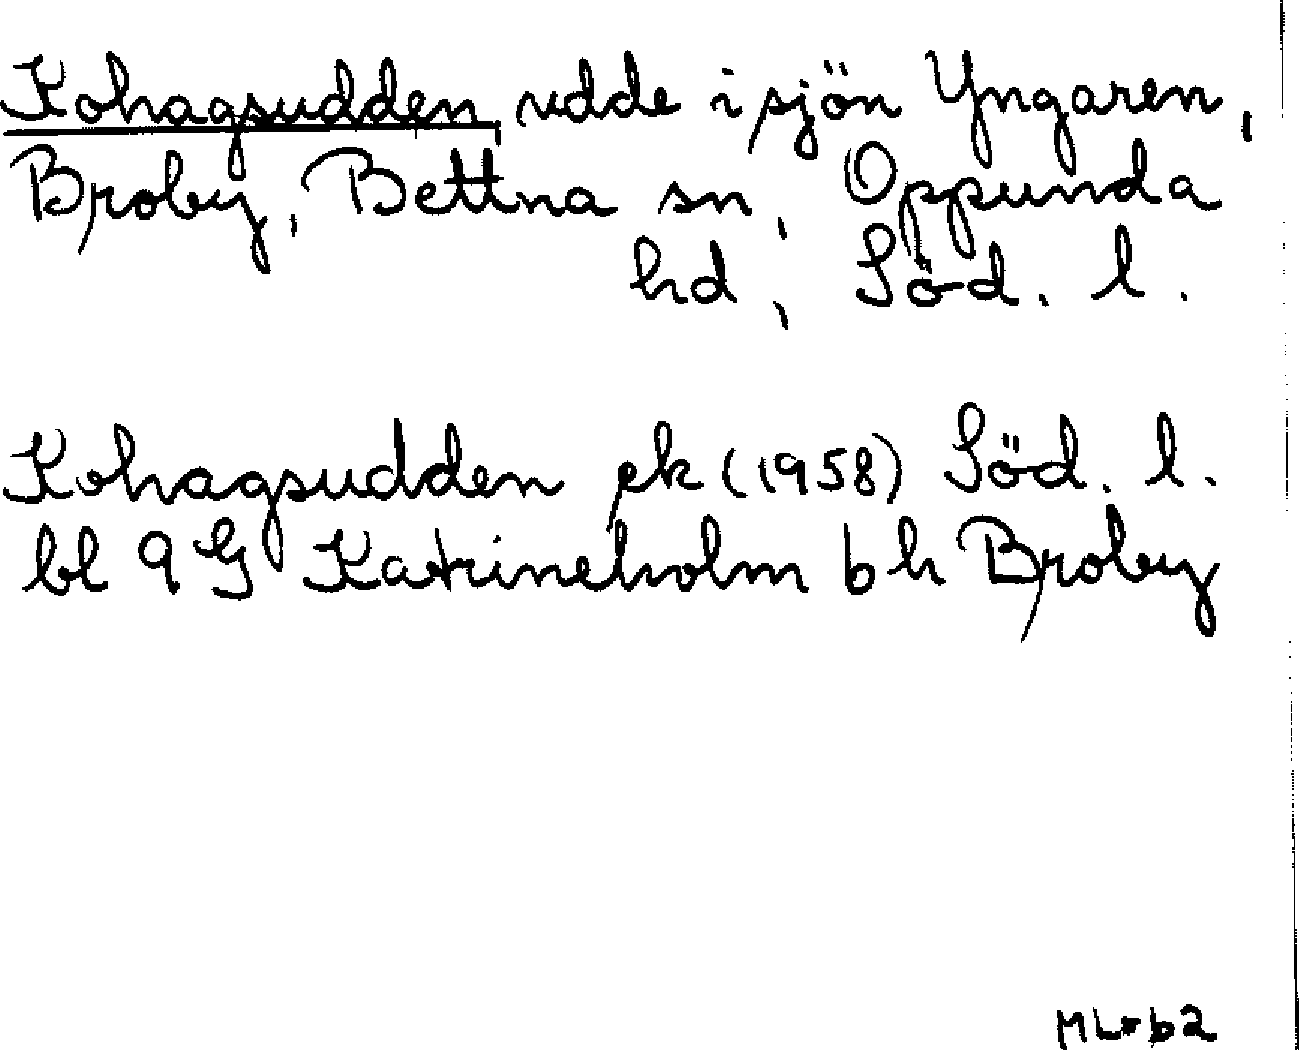 Kohagsudden, udde i sjön Yngaren,
Broby, Bettna sn, Oppunda
hd, Söd. l.
Kohagsudden ek (1958) Söd. l.
bl 9 G Katrineholm b h Broby